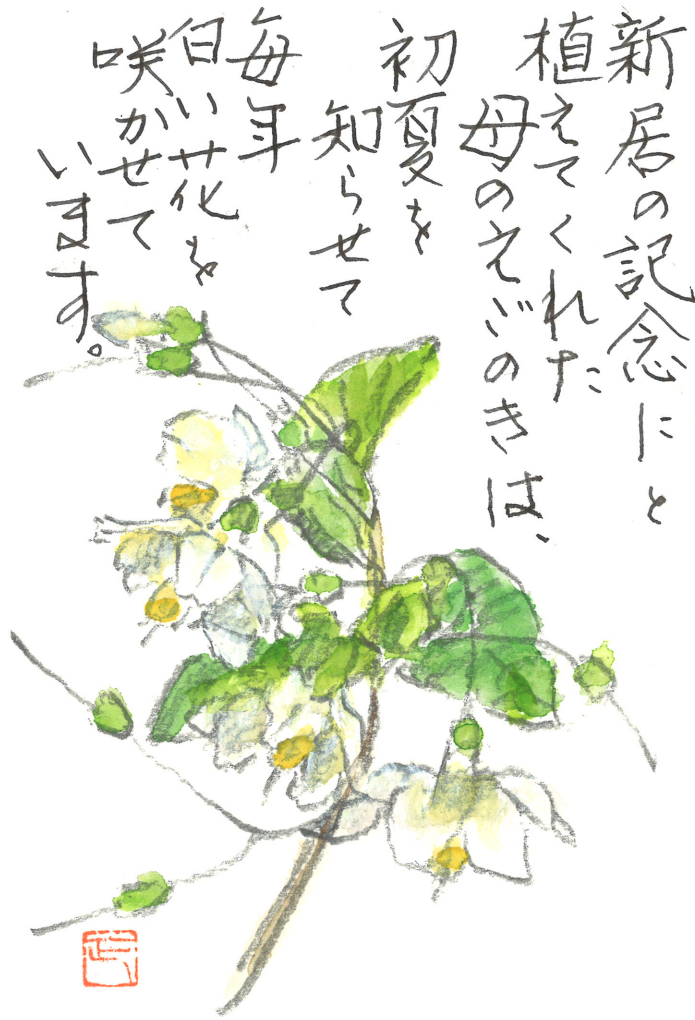 新居の記念にと
植えてくれた
母のえごのきは、
初夏を
知らせて
毎年
白い花を
咲かせて
います。